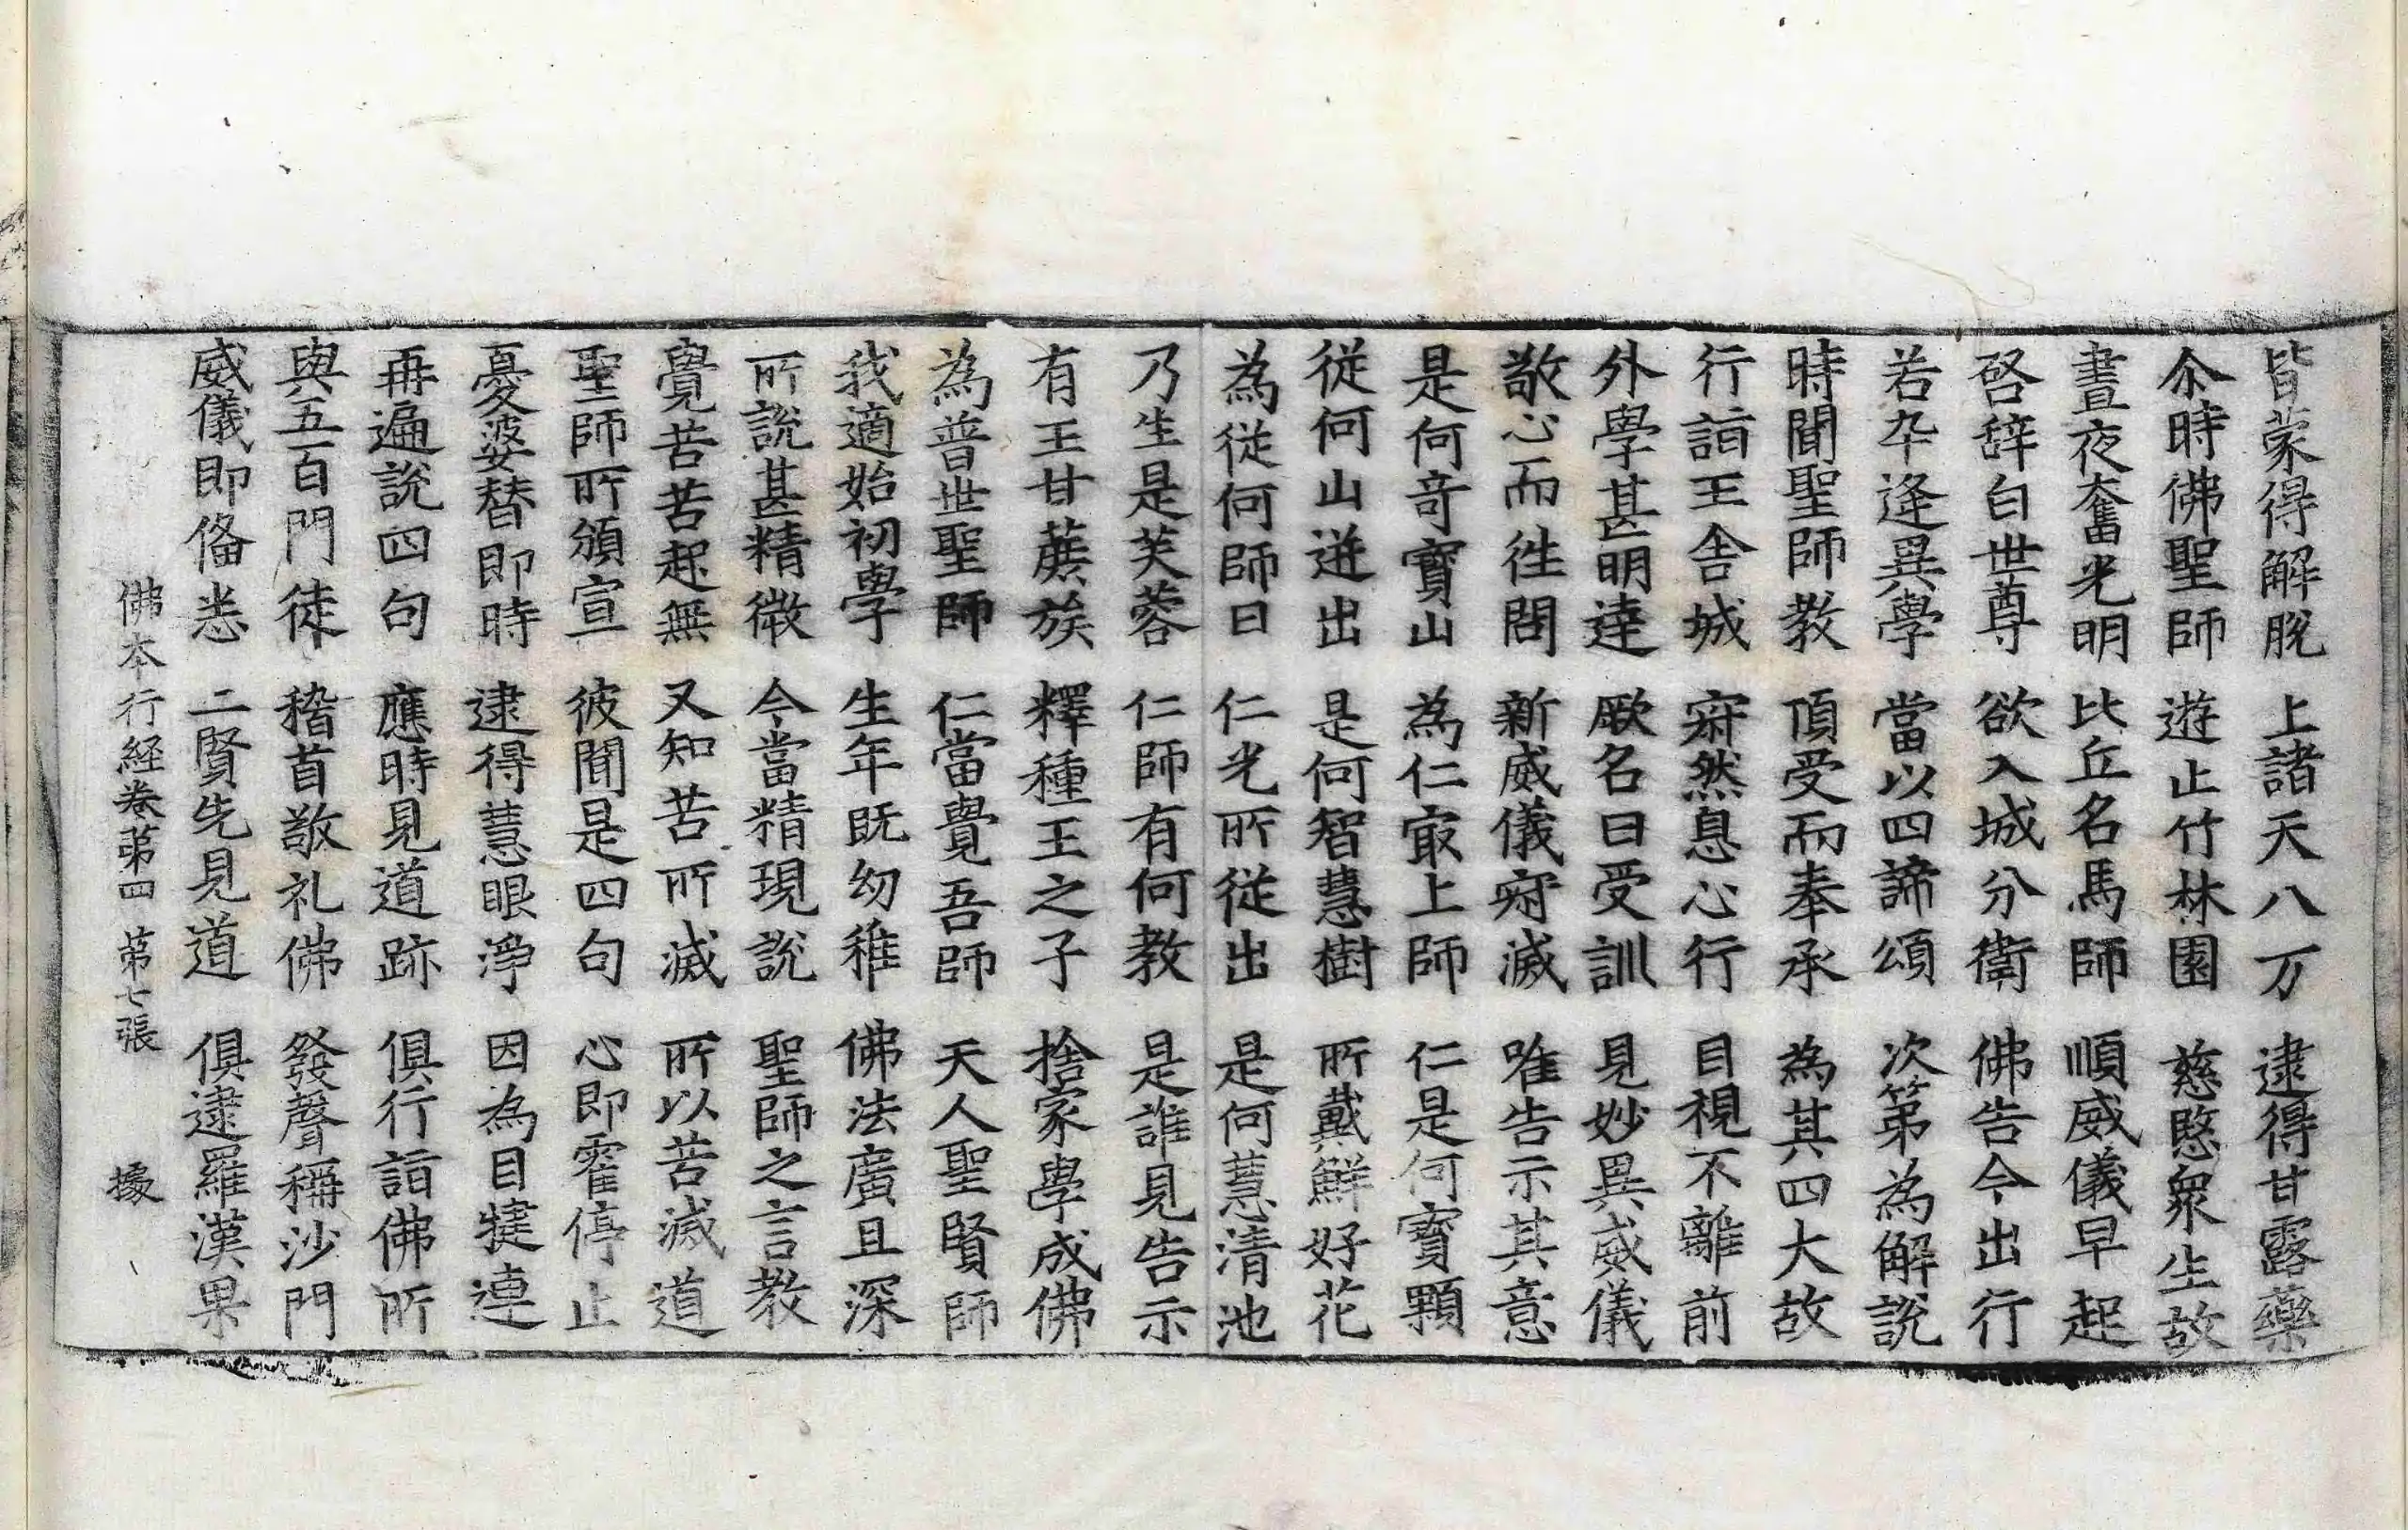 皆蒙得解脫 上諸天八万 逮得甘露藥
尒時佛聖師 遊止竹林園 慈愍衆生故
晝夜奮光明 比丘名馬師 順威儀早起
啓辞白世尊 欲入城分衛 佛告今出行
若卒逢異學 當以四諦頌 次第為解說
時聞聖師教 頂受而奉承 為其四大故
行詣王舎城 寂然息心行 目視不離前
外學甚明達 厥名曰受訓 見妙異威儀
敬心而徃問 新威儀寂滅 唯告示其意
是何竒寶山 為仁冣上師 仁是何寶顆
従何山迸出 是何智慧樹 所戴鮮好花
為従何師日 仁光所従出 是何慧清池
乃生是芙蓉 仁師有何教 是誰見告示
有王甘蔗族 釋種王之子 捨家學成佛
為普世聖師 仁當覺吾師 天人聖賢師
我適始初學 生年既幼稚 佛法廣且深
所說甚精微 今當精現說 聖師之言教
覺苦苦起無 又知苦所滅 所以苦滅道
聖師所頒宣 彼聞是四句 心即霍停止
憂婆替即時 逮得慧眼淨 因為目揵連
再遍說四句 應時見道跡 俱行詣佛所
與五百門徒 稽首敬礼佛 發聲稱沙門
威儀即俻悉 二賢先見道 俱逮羅漢果
佛本行経卷第四 第七張 據